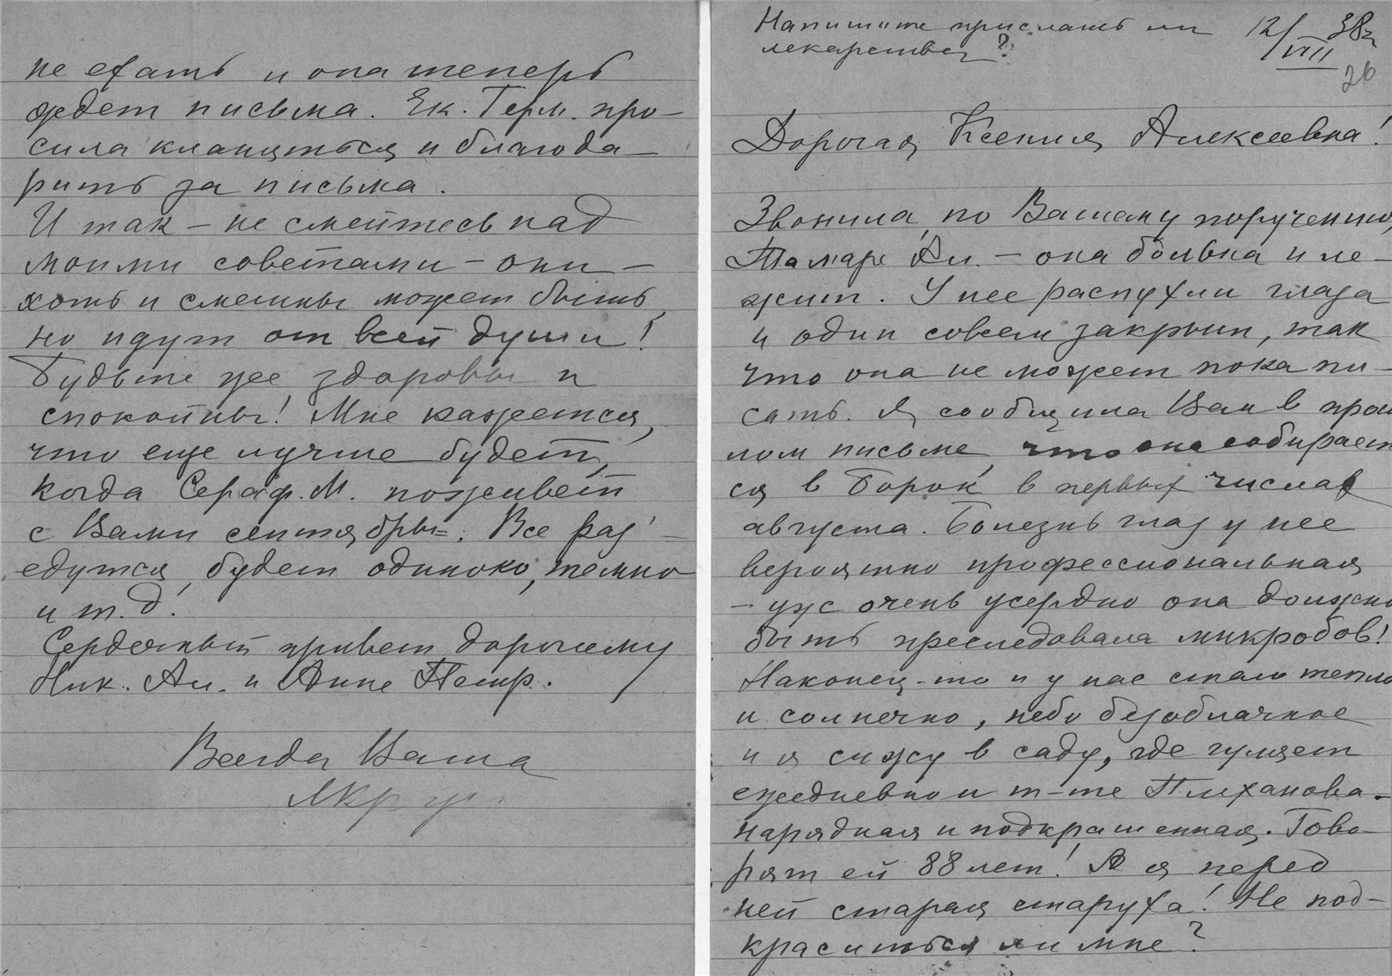 Напишите прислать ли
лекарства?
12/VIII 38 г.
26
Дорогая Ксения Алексеевна!
Звонила, по Вашему поручению,
Тамаре Ал. – она больна и ле-
жит. У нее распухли глаза
и один совсем закрыт, так
что она не может пока пи-
сать. Я сообщила Вам в прош
лом письме, что она собирает
ся в Борок в первых числах
августа. Болезнь глаз у нее
вероятно профессиональная
– уж очень усердно она должно
быть преследовала микробов!
Наконец-то и у нас стало тепло
и солнечно, небо безоблачное
и я сижу в саду, где гуляет
ежедневно и m-me Плеханова-
нарядная и подкрашенная. Гово-
рят ей 88 лет! А я перед
ней старая старуха! Не под-
краситься ли мне?
не ехать и она теперь
ждет письма. Ек. Герм. про-
сила кланяться и благода-
рить за письма.
И так – не смейтесь над
моими советами – они –
хоть и смешны может быть,
но идут от всей души!
Будьте же здоровы и
спокойны! Мне кажется,
что еще лучше будет,
когда Сераф. М. поживет
с Вами сентябрь. Все раз'-
едутся, будет одиноко, темно
и т.д.
Сердечный привет дорогому
Ник. Ал. и Анне Петр.
Всегда Ваша